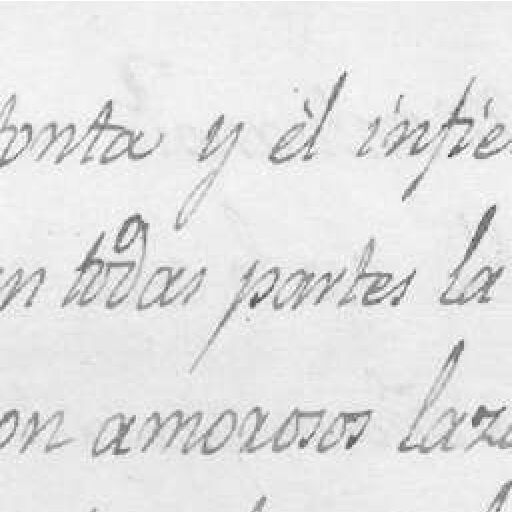 tonta y él infie
n todas partes la
on amorosos laz